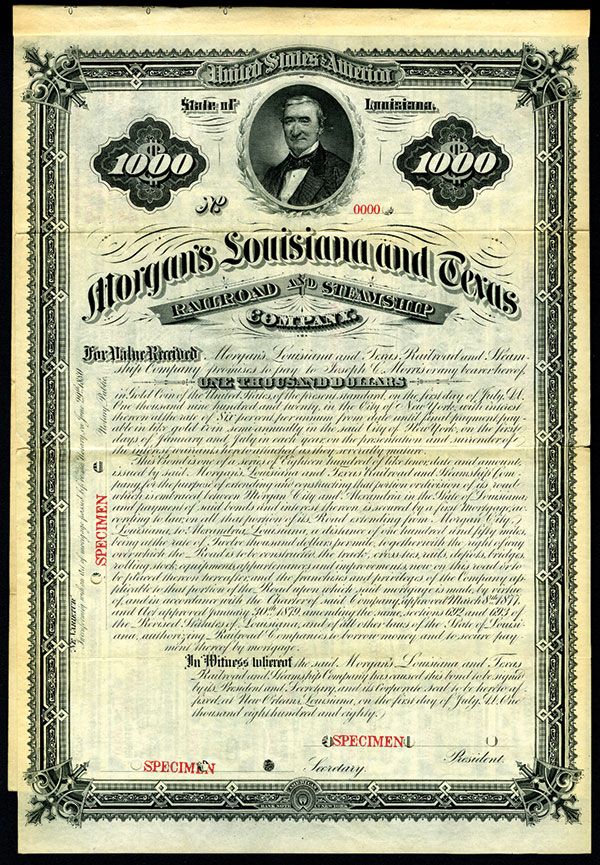 United States of America
State of Louisiana,
$1000 $1000
No 0000
Morgan's Louisiana and Texas
RAILROAD AND STEAMSHIP
COMPANY.
For Value Received, Morgan's Louisiana and Texas Railroad and Steam-
ship Company promises to pay to Joseph C. Morris or any bearer hereof,
ONE THOUSAND DOLLARS
in Gold Coin of the United States, of the present standard, on the first day of July, A.D.
One thousand nine hundred and twenty, in the City of New York, with interest
thereon at the rate of Six per cent per annum from date until final payment, pay-
able in like gold coin semi-annually in the said City of New York, on the first
days of January and July in each year, on the presentation and surrender of
the interest warrants hereto attached as they severally mature.
This Bond is one of a series of Eighteen hundred of like tenor date and amount,
issued by said Morgan's Louisiana and Texas Railroad and Steamship Com-
pany for the purpose of executing and constructing that portion or division of its road
which is embraced between Morgan City and Alexandria in the State of Louisiana
and payment of said bonds and interest thereon is secured by a first Mortgage, ac-
cording to law, on all that portion of its Road extending from Morgan City,
Louisiana, to Alexandria, Louisiana, a distance of one hundred and fifty miles,
being the rate of Twelve thousand dollars per mile, together with the right of way
over which the Road is to be constructed, the track, cross-ties, rails, depots, bridges,
rolling stock, equipments, appurtenances and improvements, now on this road or to
be placed thereon hereafter, and the franchises and privileges of the Company ap-
plicable to that portion of the Road upon which said mortgage is made, by virtue
of, and in accordance with the Charter of said Company, approved March 1877,
and Act approved January 30th 1879, amending the same, sections 692 and 693 of
the Revised Statutes of Louisiana, and of all other laws of the State of Louisi-
ana, authorizing Railroad Companies, to borrow money and to secure pay-
ment thereof by mortgage.
In Witness whereof the said, Morgan's, Louisiana and Texas
Railroad and Steamship Company has caused this bond to be signed
by its President and Secretary, and its Corporate seal to be hereto af-
fixed, at New Orleans, Louisiana, on the first day of July A.D. One
thousand eight hundred and eighty.
SPECIMEN
President.
SPECIMEN
Secretary.
SPECIMEN
Ne Varietur
Notary Public.